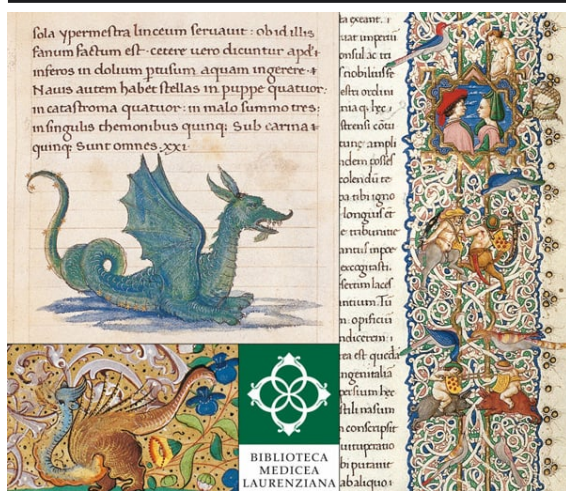 sola ypermestra linceum seruauit : ob id illis
fanum factum est · cetere uero dicuntur apd'
inferos in dolium ptusum aquam ingerere ·
Nauis autem habet stellas in puppe quatuor:
in catastroma quatuor: in malo summo tres:
in singulis themonibus quinq; Sub carina
quinq; Sunt omnes .xxi.
ea exeant. i
uat imperii
onsul ac tri
riobilisse
estri ordini
nia q; hec
strensi cōti
tunc ampli
ndem posses
colendū te
pa tibi igno
longius et
e tribunitie
antus inpoe
excogitasti.
sertim laces
ntium. Tu
opificii
ndiceteni
ea est queda
ingenitalia
persium hec
stili nasum
n conscripsit
uituperatio
bi putauit
ab aliquo
BIBLIOTECA
MEDICEA
LAURENZIANA